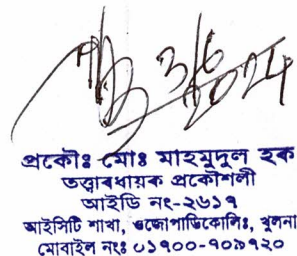 3/6
2024
প্রকৌঃ মোঃ মাহমুদুল হক
তত্ত্বাবধায়ক প্রকৌশলী
আইডি নং-২৬১৭
আইসিটি শাখা, ওজোপাডিকোলিঃ, খুলনা
মোবাইল নংঃ ০১৭০০-৭০৯৭২০